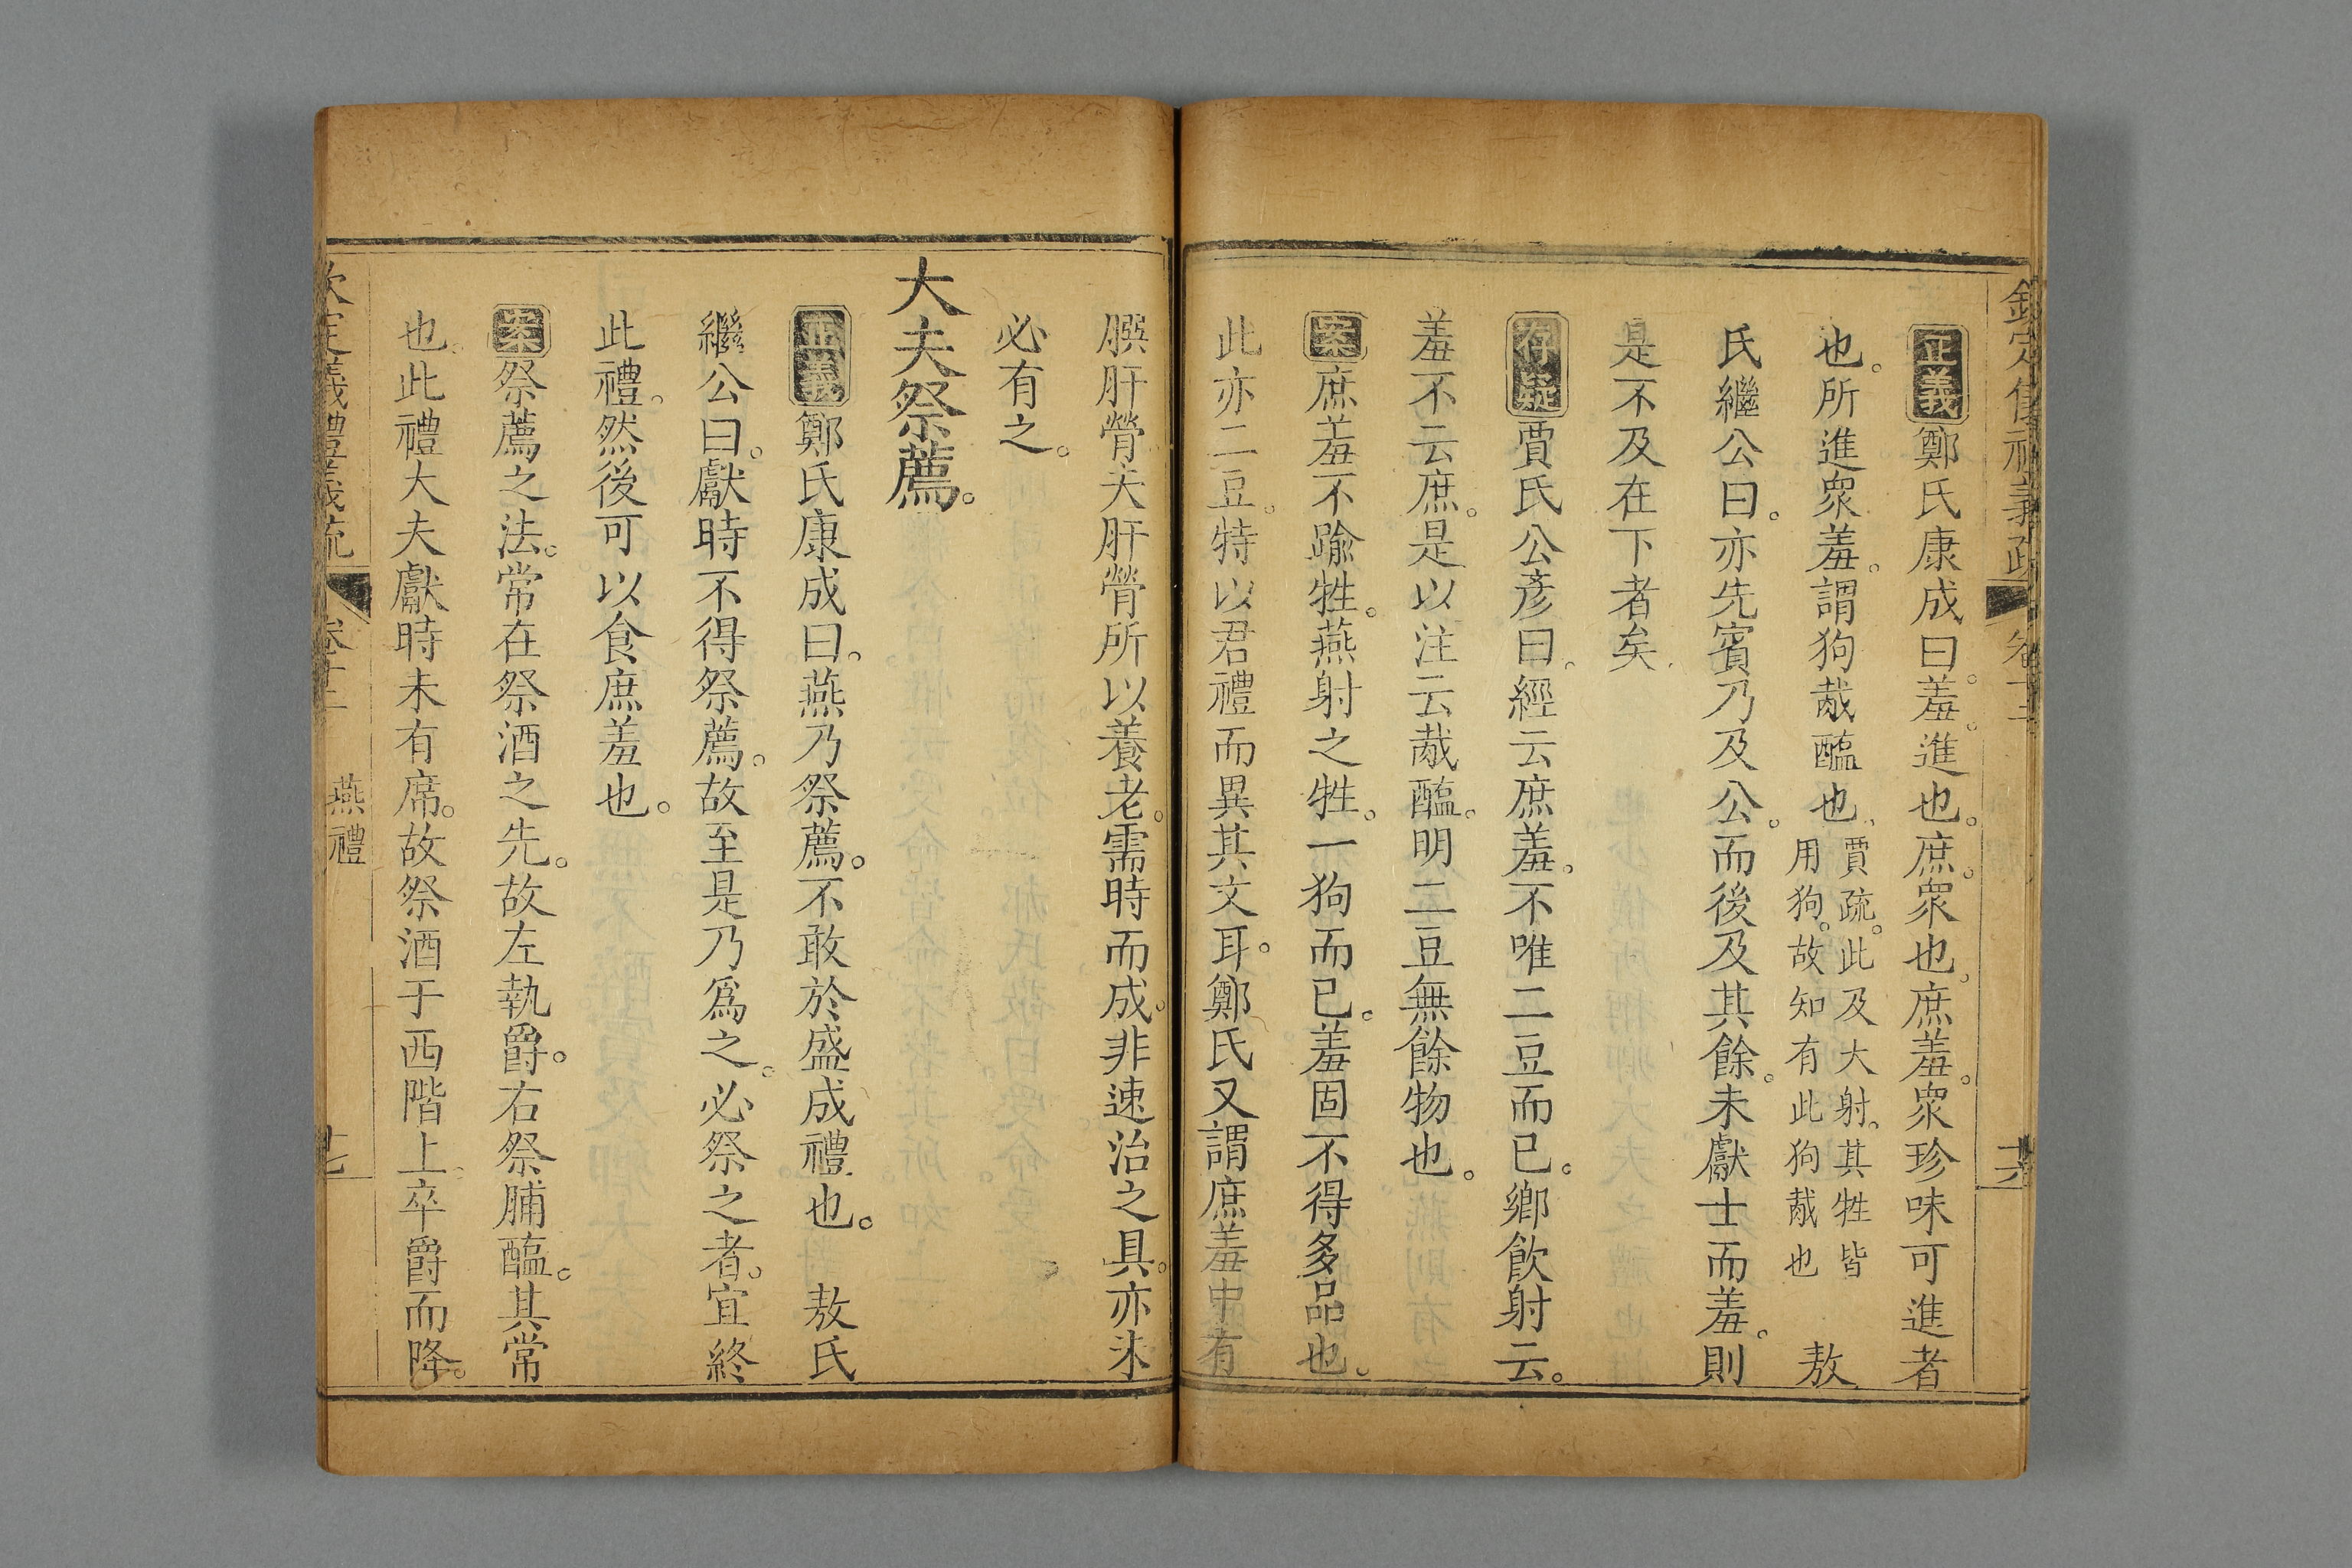 欽定儀禮義疏 卷十二 十六
正義鄭氏康成曰。羞。進也。庶。衆也。庶羞。衆珍味可進者
也。所進衆羞。謂狗胾醢也。賈疏。此及大射。其牲皆用狗。故知有此狗胾也 敖
氏繼公曰。亦先賓乃及公。而後及其餘。未獻士而羞。則
是不及在下者矣。
存疑賈氏公彦曰。經云庶羞。不唯二豆而已。鄉飲射云。
羞不云庶。是以注云胾醢。明二豆無餘物也。
案庶羞不踰牲。燕射之牲。一狗而已。羞固不得多品也。
此亦二豆。特以君禮而異其文耳。鄭氏又謂庶羞中有
膫肝膋夫肝膋所以養老。需時而成。非速治之具。亦未
必有之。
大夫祭薦。
正義鄭氏康成曰。燕乃祭薦。不敢於盛成禮也。 敖氏
繼公曰。獻時不得祭薦。故至是乃爲之。必祭之者。宜終
此禮。然後可以食庶羞也。
案祭薦之法。常在祭酒之先。故左執爵。右祭脯醢。其常
也。此禮大夫獻時未有席。故祭酒于西階上。卒爵而降。
欽定儀禮義疏 卷十二 燕禮 十七